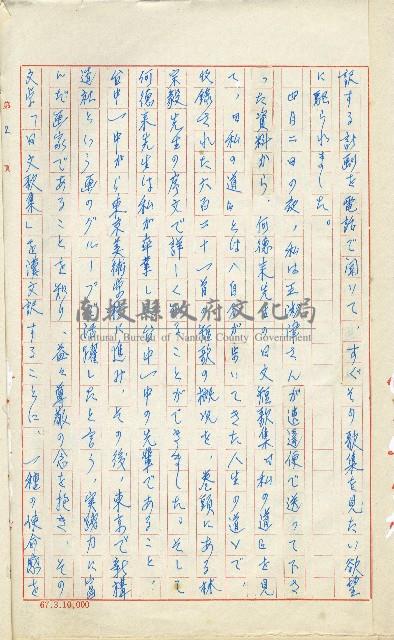 訳する計劃を電話で聞いて、すぐその歌集を見たい欲望
に駆られました。
四月二日の夜、私は王 さんが速達便で送って下さ
った資料から、何德来先生の日文短歌集『私の道』を見
て、『私の道』とは〈自分が歩いてきた人生の道〉で、
收錄された六百二十一首の短歌の概况を、巻頭にある林
宗毅先生の序文で詳しく知ることができました。そして
何德来先生は私が卒業した台中一中の先輩であること、
台中一中から東京美術学校に進み、その後、東京で新構
造社という画のグループで活躍したと言う、実踐力に富
んだ画家であることを知り、益々尊敬の念を抱き、その
文学「日文歌集」を漢文訳することに、一種の使命感を
南投縣政府文化局
Cultural Bureau of Nantou County Government
67.3.10,000